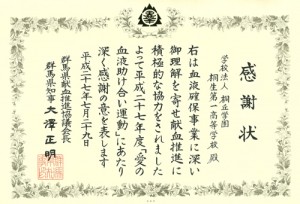 感謝状
学校法人 桐丘学園
桐生第一高等学校 殿
右は血液確保事業に深い
御理解を寄せ献血推進に
積極的な協力をされました
よって平成二十七年度「愛の
血液助け合い運動」にあたり
深く感謝の意を表します
平成二十七年七月二十九日
群馬県献血推進協議会長
群馬県知事 大澤正明